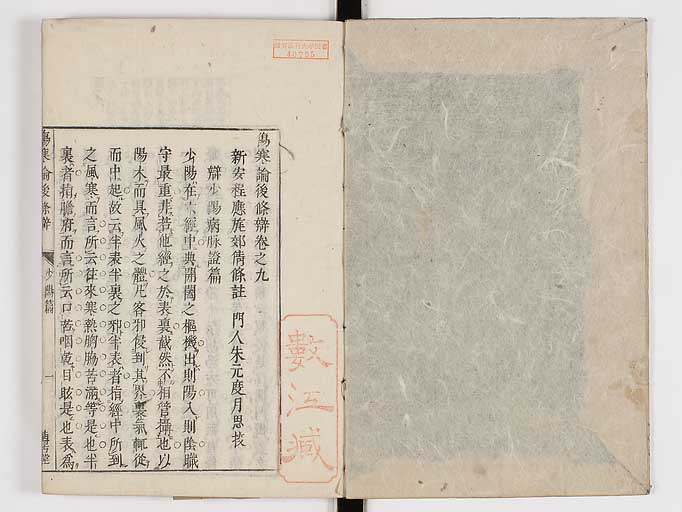 傷寒論後條辨卷之九
新安程應旄郊倩條註 門人朱元度月思校
辨少陽病脉證篇
少陽在六經中典開闔之樞機出則陽入則陰職
守最重非若他經之於表裏截然不相管攝也以
陽木而具風火之體凡客邪侵到其界裏氣輒從
而中起故云半表半裏之邪半表者指經中所到
之風寒而言所云往來寒熱胸脇苦滿等是也半
裏者指膽府而言所云口苦咽乾目眩是也表爲
傷寒論後條辨
少陽篇
一
數江臧
40795